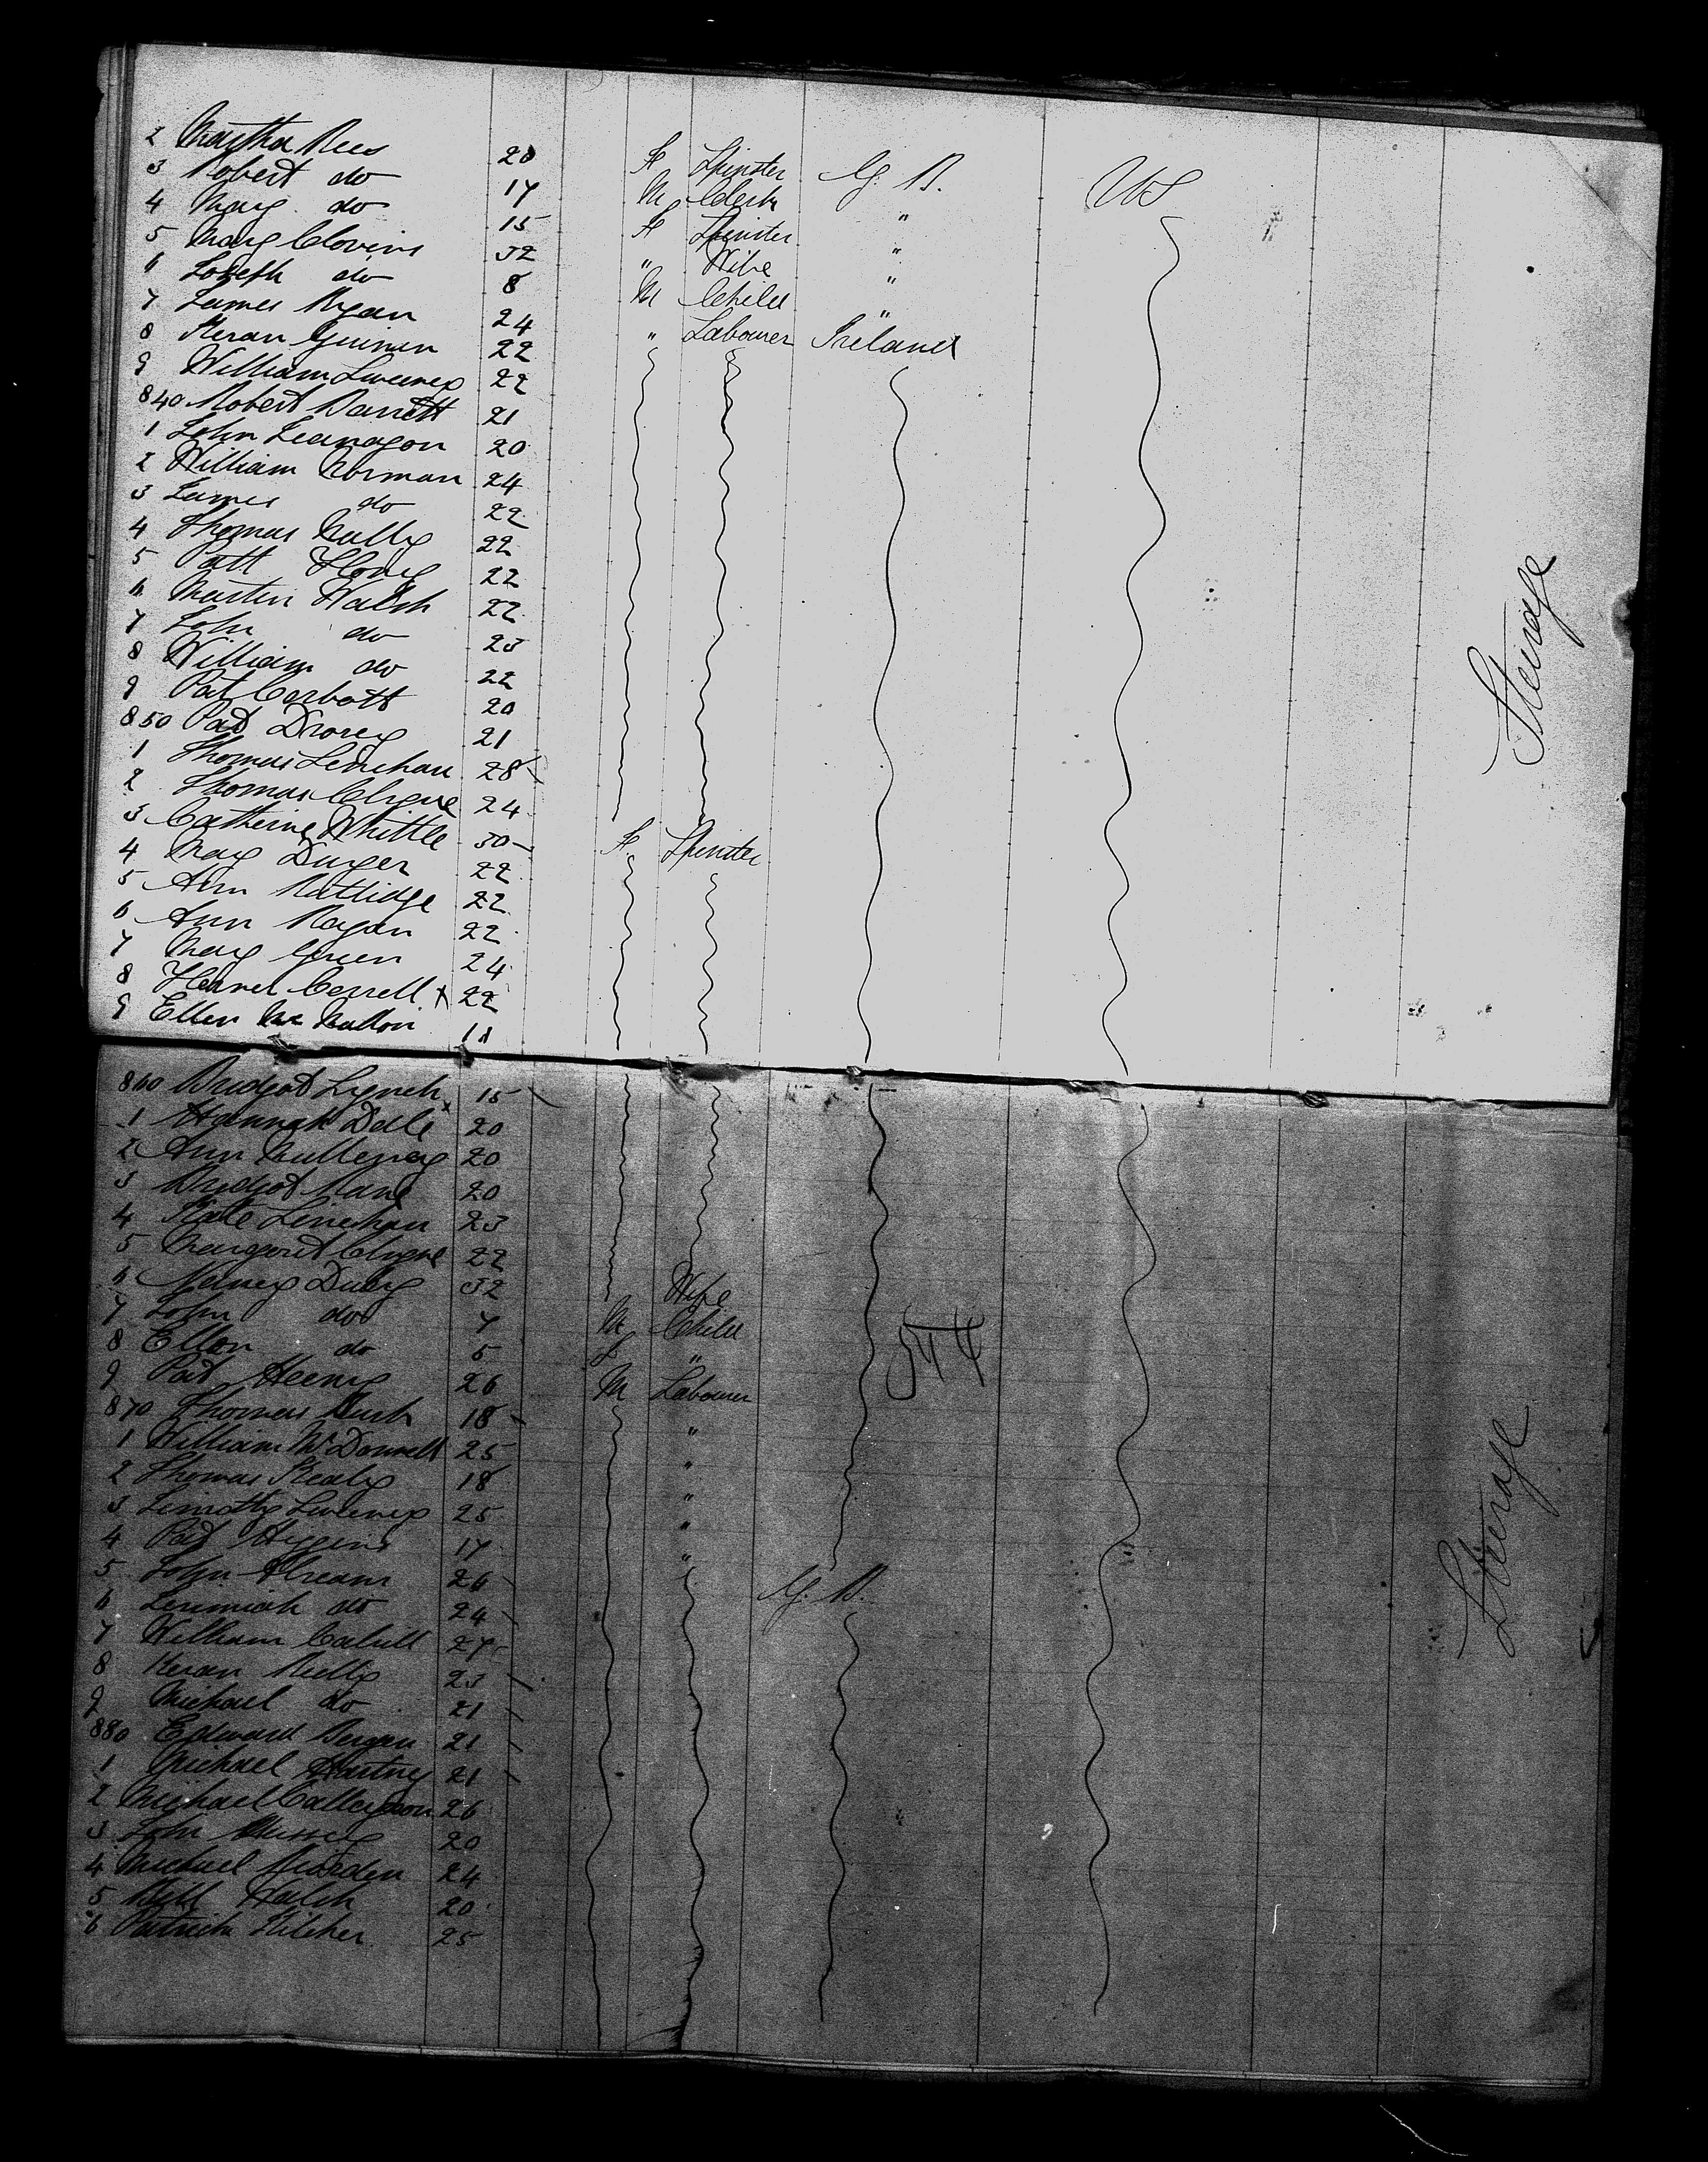 2 Martha Rees 20 F Spinster G. B. US
3 Robert do 17 M Clerk "
4 Mary do 15 F Spinster "
5 Mary Clovins 32 " Wife "
6 Joseph do 8 M Child "
7 James Ryan 24 " Labourer Ireland
8 Keran Guinen 22
9 William Sweeney 22
840 Robert Barrett 21
1 John Leanagon 20
2 William Norman 24
3 James do 22
4 Thomas Nally 22
5 Patt Hony 22
6 Martin Walsh 22
7 John do 23
8 William do 22
9 Pat Corbott 20
850 Pat Drorey 21
1 Thomas Linehan 28
2 Thomas Clyne 24
3 Catherine Whittle 30 F. Spinster
4 Mary Durger 22
5 Ann Rattidge 22
6 Ann Ragan 22
7 Mary Green 24
8 Honnel Correll x 22
9 Ellen Mc Mallon 18
Steerage
860 Bridget Lynch 15
1 Hannah Dalle x 20
2 Ann Mulleney 20
3 Bridget Kane 20
4 Kate Linehan 23
5 Margaret Clyne 22
6 Nancy Duley 32 Wife
7 John do 7 M Child
8 Ellen do 5 F "
544
9 Pat Heeny 26 M Labourer
870 Thomas Rush 18 "
1 William McDonnell 25 "
2 Thomas Kealy 18 "
3 Timothy Sweeney 25 "
4 Pat Higgins 17 "
5 John Ahearn 26 G. B.
6 Jeremiah do 24
7 William Cahill 27
8 Keran Kelly 23
9 Michael do 21
880 Edward Bergan 21
1 Michael Hartney 21
2 Michael Callaghan 26
3 John 20
4 Michael Reardon 24
5 Will Walsh 20
6 Patrick Kilcher 25
Steerage